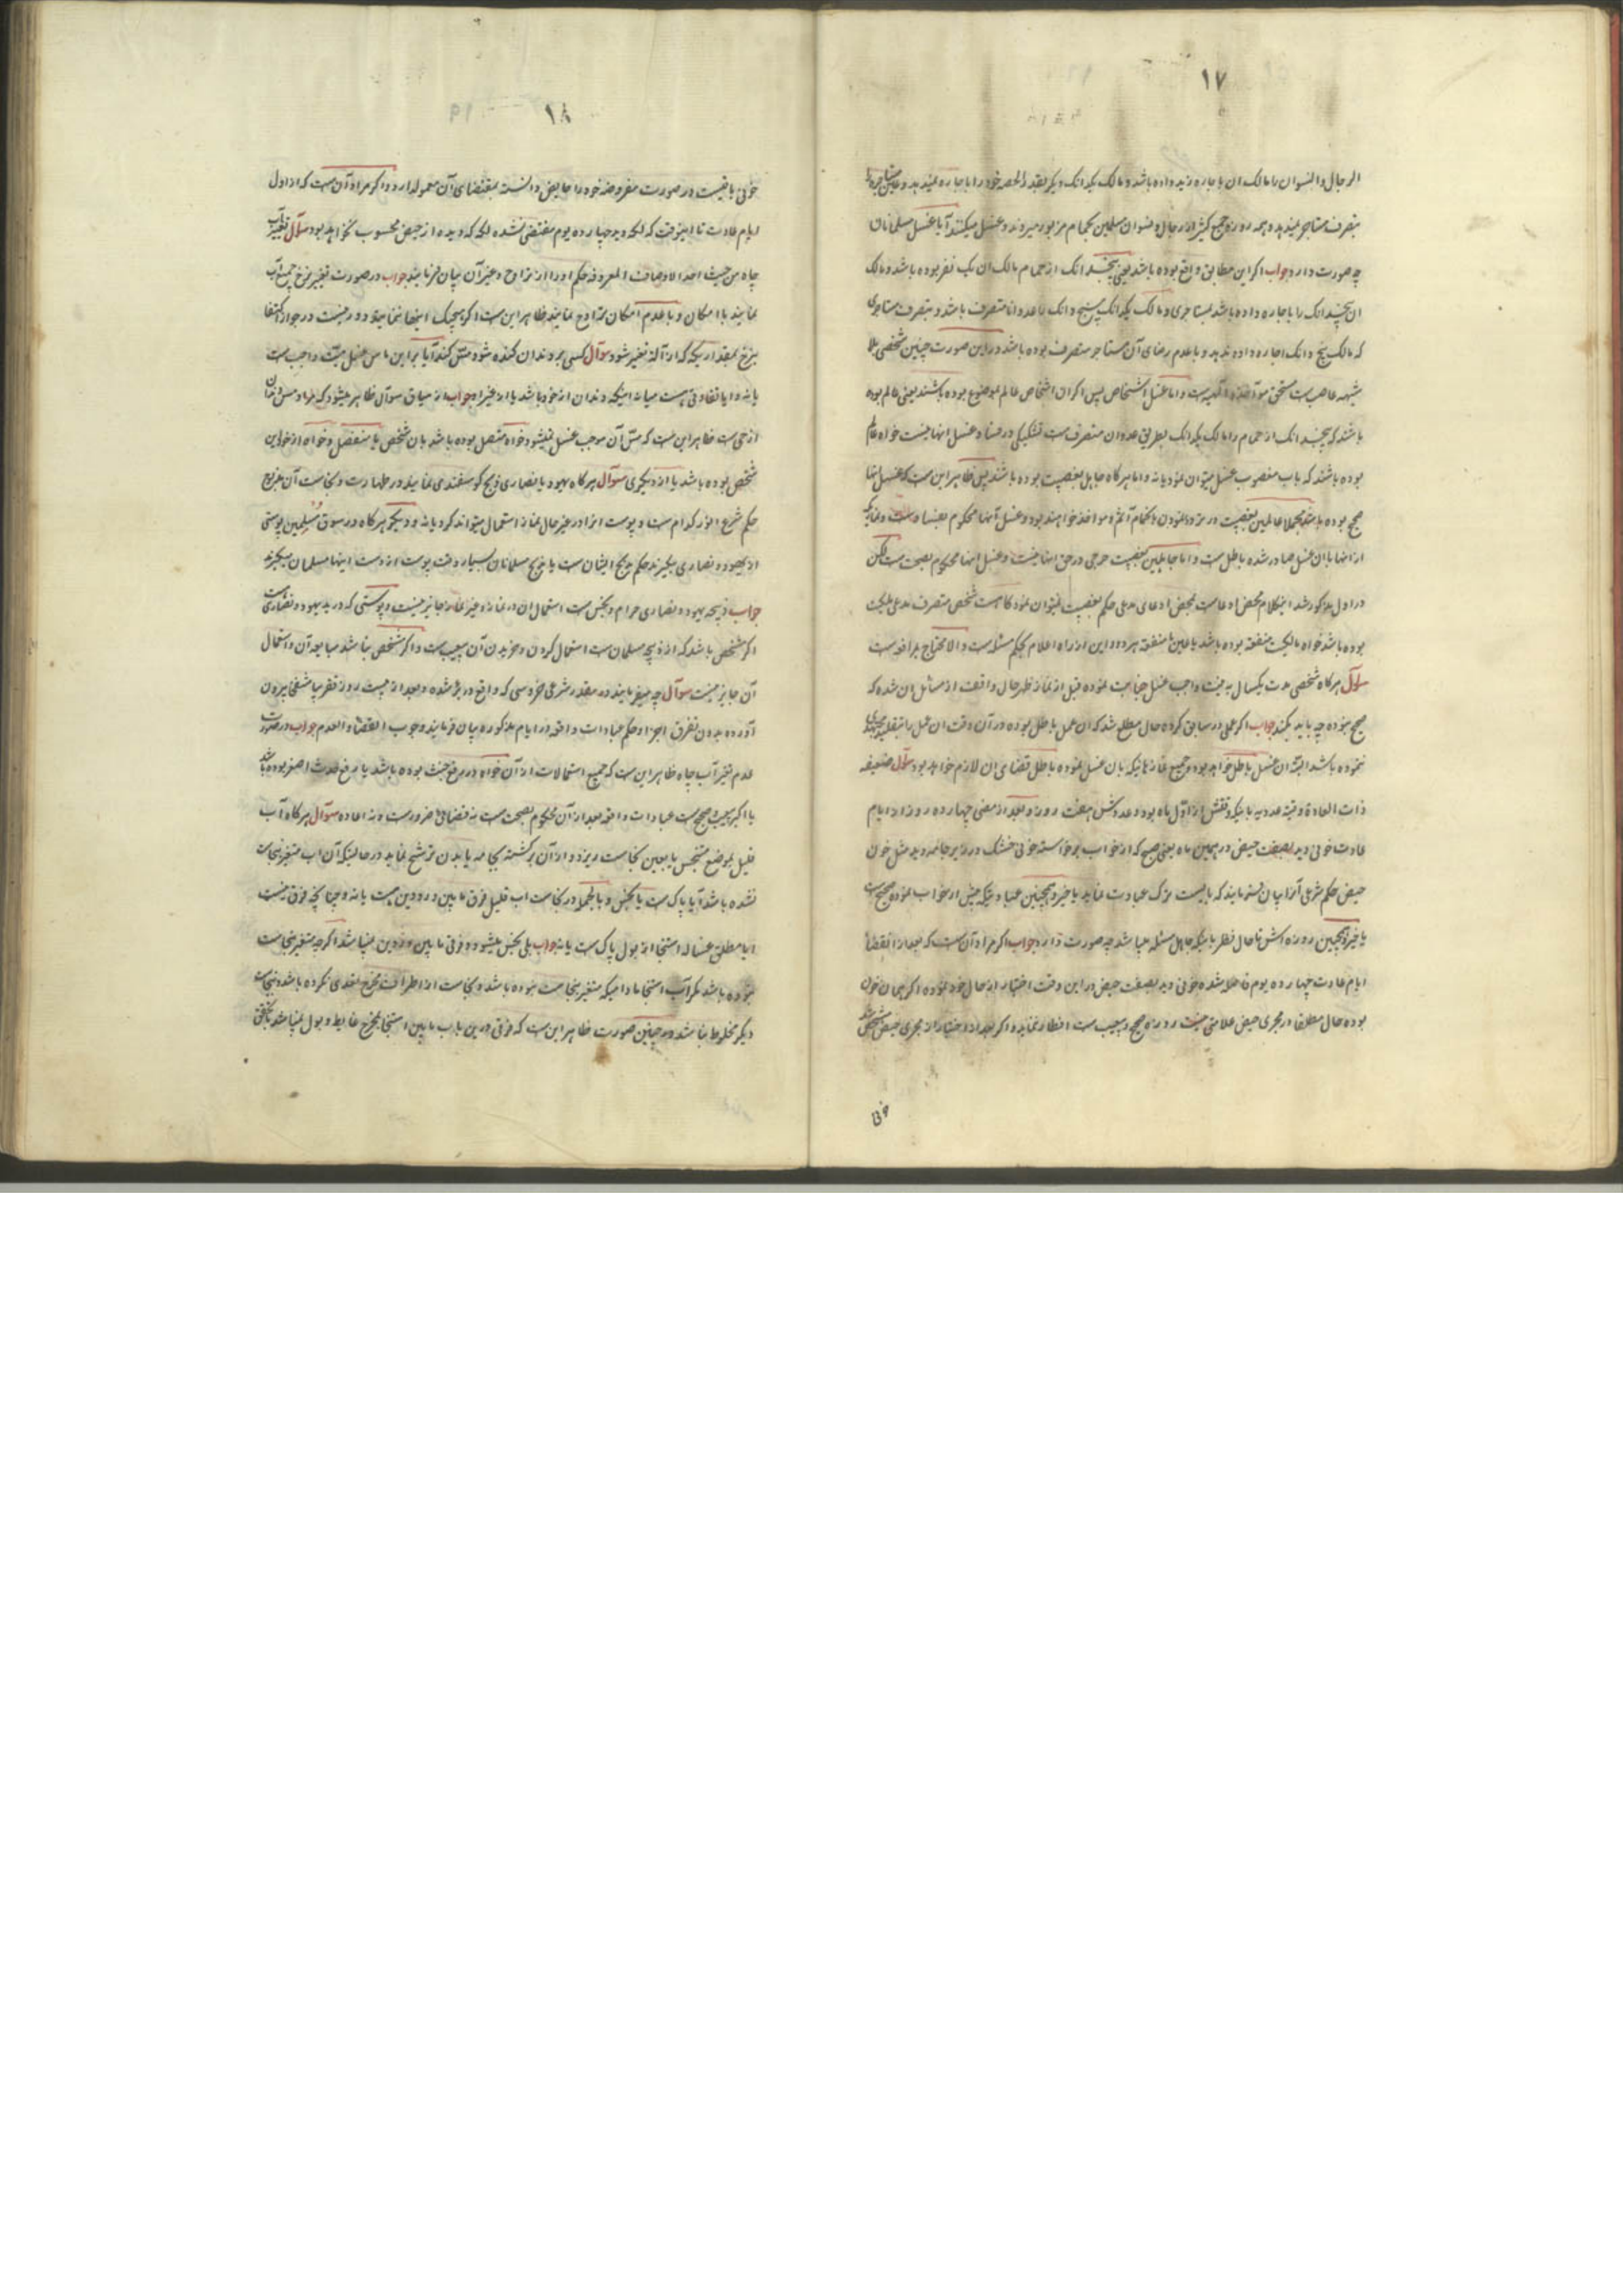 ۱۷
الرجال والنسوان را مالک ان باجاره زید داده باشد و مالک یکدانک دیکر بقدر الحصه خود را باجاره نمیدهد و
بتصرف مستاجر نمیدهد و همه روزه جمع کثیر از رجال و نسوان مسلمین بحمام مزبور میروند و غسل میکنند آیا غسل مسلمانان
چه صورت دارد جواب اکر این مطابق واقع بوده باشد یعنی پنجدانک از حمام مالک ان یک نفر بوده باشد و مالک
ان پنجدانک را باجاره داده باشد بمستاجری و مالک یکدانک پنج دانک را عدوانا متصرف باشد و بتصرف مستاجری
که مالک پنج دانک اجاره داده ندهد و با عدم رضای آن مستاجر متصرف بوده باشد در این صورت چنین شخصی بلا
شبهه غاصب است مستحق مواخذه الهیه است و اما غسل اشخاص پس اکر ان اشخاص عالم بموضوع بوده باشند یعنی عالم بوده
باشند که پنجدانک از حمام را مالک یکدانک بطریق عدوان متصرف است تشکیکی در فساد غسل اینها نیست خواه عالم
بوده باشند که باب مغصوب غسل میتوان نمود یا نه و اما هرکاه جاهل بغصبیت بوده باشند پس ظاهر این است که غسل اینها
صحیح بوده باشد مجملا عالمین بغصبیت در تردد نمودن بحمام آثم و مواخذ خواهند بود و غسل آنها محکوم بفساد است و نمازیکه
از انها با ان غسل صادر شده باطل است و اما جاهلین بغصبیت حرجی در حق انها نیست و غسل اینها محکوم بصحت است لکن
در اول مذکور شد اینکلام محض ادعا است بمحض ادعای مدعی حکم بغصبیت نمیتوان نمود کاهست شخص متصرف مدعی ملکیت
بوده باشد خواه مالکیت منفعه بوده باشد یا عین یا منفعه هر دو و این از راه اعلام بحکم مسئله است و الا محتاج بمرافعه است
سوآل هرکاه شخصی مدت یکسال به نیت واجب غسل جنابت نموده قبل از نماز ظهر حال واقف از مسائل ان شده که
صحیح نبوده چه باید بکند جواب اکر عملی در سابق کرده حال مطلع شد که ان عمل باطل بوده در آن وقت ان عمل را بتقلید مجتهدی
ننموده باشد البته ان غسل باطل خواهد بود و جمیع نمازهائیکه بان غسل نموده باطل قضای ان لازم خواهد بود سوآل ضعیفه
ذات العادة وقتیه عددیه باینکه وقتش از اول ماه بوده و عددش هفت روز و بعد از مضی چهارده روز از ایام
عادت خونی دید بصفت حیض در همین ماه یعنی صبح که از خواب برخاسته خونی خشک در زیر جامه دید مثل خون
حیض حکم شرعی آنرا بیان فرمایند که بایست ترک عبادت نماید یا خیر و همچنین عباداتیکه پیش از خواب نموده صحیح است
یا خیر و همچنین روزه اش تا حال نظر باینکه جاهل مسئله میباشد چه صورت دارد جواب اکر مراد آن است که بعد از انقضاء
ایام عادت چهارده یوم فاصله شده خونی دید بصفت حیض در این وقت اختبار از حال خود نموده اکر همان خون
بوده حال مطلقا در مجری حیض علامتی نیست روزه صحیح و بیعیب است افطار ننماید و اکر بعد از اختبار از مجری حیض مشخص شد
خونی
۱۸
خونی باقیست در صورت مفروضه خود را حایض دانسته بمقتضای آن معمول دارد و اکر مراد آن است که از اول
ایام عادت تا اینوقت که لکه دیده چهارده یوم منقضی نشده لکه که دیده از حیض محسوب نخواهد بود سوآل تغییر آب
چاه من حیث احد الاوصاف المعروفه حکم اورا از نزاوح و غیر آن بیان فرمایند جواب در صورت تغییر نزح جمیع آب
نمایند با امکان و با عدم امکان تراوح نمایند ظاهر این است اکر هیچیک اینها ننمایند دور نیست در جواز اکتفا
بنزح بمقداریکه که ازاله تغییر شود سوآل کسی بر دندان کنده شود مس کند آیا بر این ماس غسل میّت واجب است
یا نه و ایا تفاوتی هست میانه اینکه دندان از خود باشد یا از غیر او جواب از سیاق سوآل ظاهر میشود که مراد مس دندان
از حی است ظاهر این است که مسّ آن موجب غسل نمیشود خواه متصل بوده باشد بان شخص یا منفصل و خواه از خود این
شخص بوده باشد یا از دیکری سوآل هرکاه یهود یا نصاری ذبح کوسفندی نماید در طهارت و نجاست آن مذبوح
حکم شرع انور کدام است و پوست انرا در غیر حال نماز استعمال میتواند کرد یا نه و دیکر هرکاه در سوق مُسلِمین پوستی
از یهود و نصاری بکیرند حکم ذبح ایشان است یا ذبح مسلمانان بسیار وقت پوست از دست اینها مسلمان میکیرند
جواب ذبیحه یهود و نصاری حرام و نجس است استعمال ان در نماز و غیر نماز جایز نیست و پوستی که در ید یهود و نصاری است
اکر مشخص باشد که از ذبیحه مسلمان است استعمال کردن و خریدن آن بیعیب است و اکر مشخص نباشد مبایعه آن و استعمال
آن جایز نیست سوآل چه میفرمایند در مقدر شرعی خروسی که واقع در بئر شده و بعد از بیست روز تقریبا متفسخ بیرون
آورده بدون تفرق اجزا و حکم عبادات واقعه در ایام مذکوره بیان فرمایند وجوب القضاء و العدم جواب در صورت
عدم تغیر آب چاه ظاهر این است که جمیع استعمالات از آن خواه در رفع خبث بوده باشد یا رفع حدث اصغر بوده باشد
یا اکبر بیعیب و صحیح است عبادات واقعه بعد از آن محکوم بصحت است نه قضائی ضرور است و نه اعاده سوآل هرکاه آب
قلیل بموضع متنجس یا بعین نجاست ریزد و از آن برکشته بجامه یا بدن ترشح نماید در حالتیکه آن اب متغیر بنجاست
نشده باشد آیا پاک است یا نجس و بالجمله در نجاست اب قلیل فرق مابین ورودین هست یا نه و چنانچه فرق نیست
ایا مطلق غساله استنجا از بول پاک است یا نه جواب بلی نجس میشود و فرقی مابین ورودین نمیباشد اکر چه متغیر بنجاست
نبوده باشد مکر آب استنجا مادامیکه متغیر بنجاست نبوده باشد و نجاست از اطراف مخرج تعدی نکرده باشد و بنجاست
دیکر مخلوط نباشد در چنین صورت ظاهر این است که فرقی در این باب مابین استنجا بمخرج غایط و بول نمیباشد